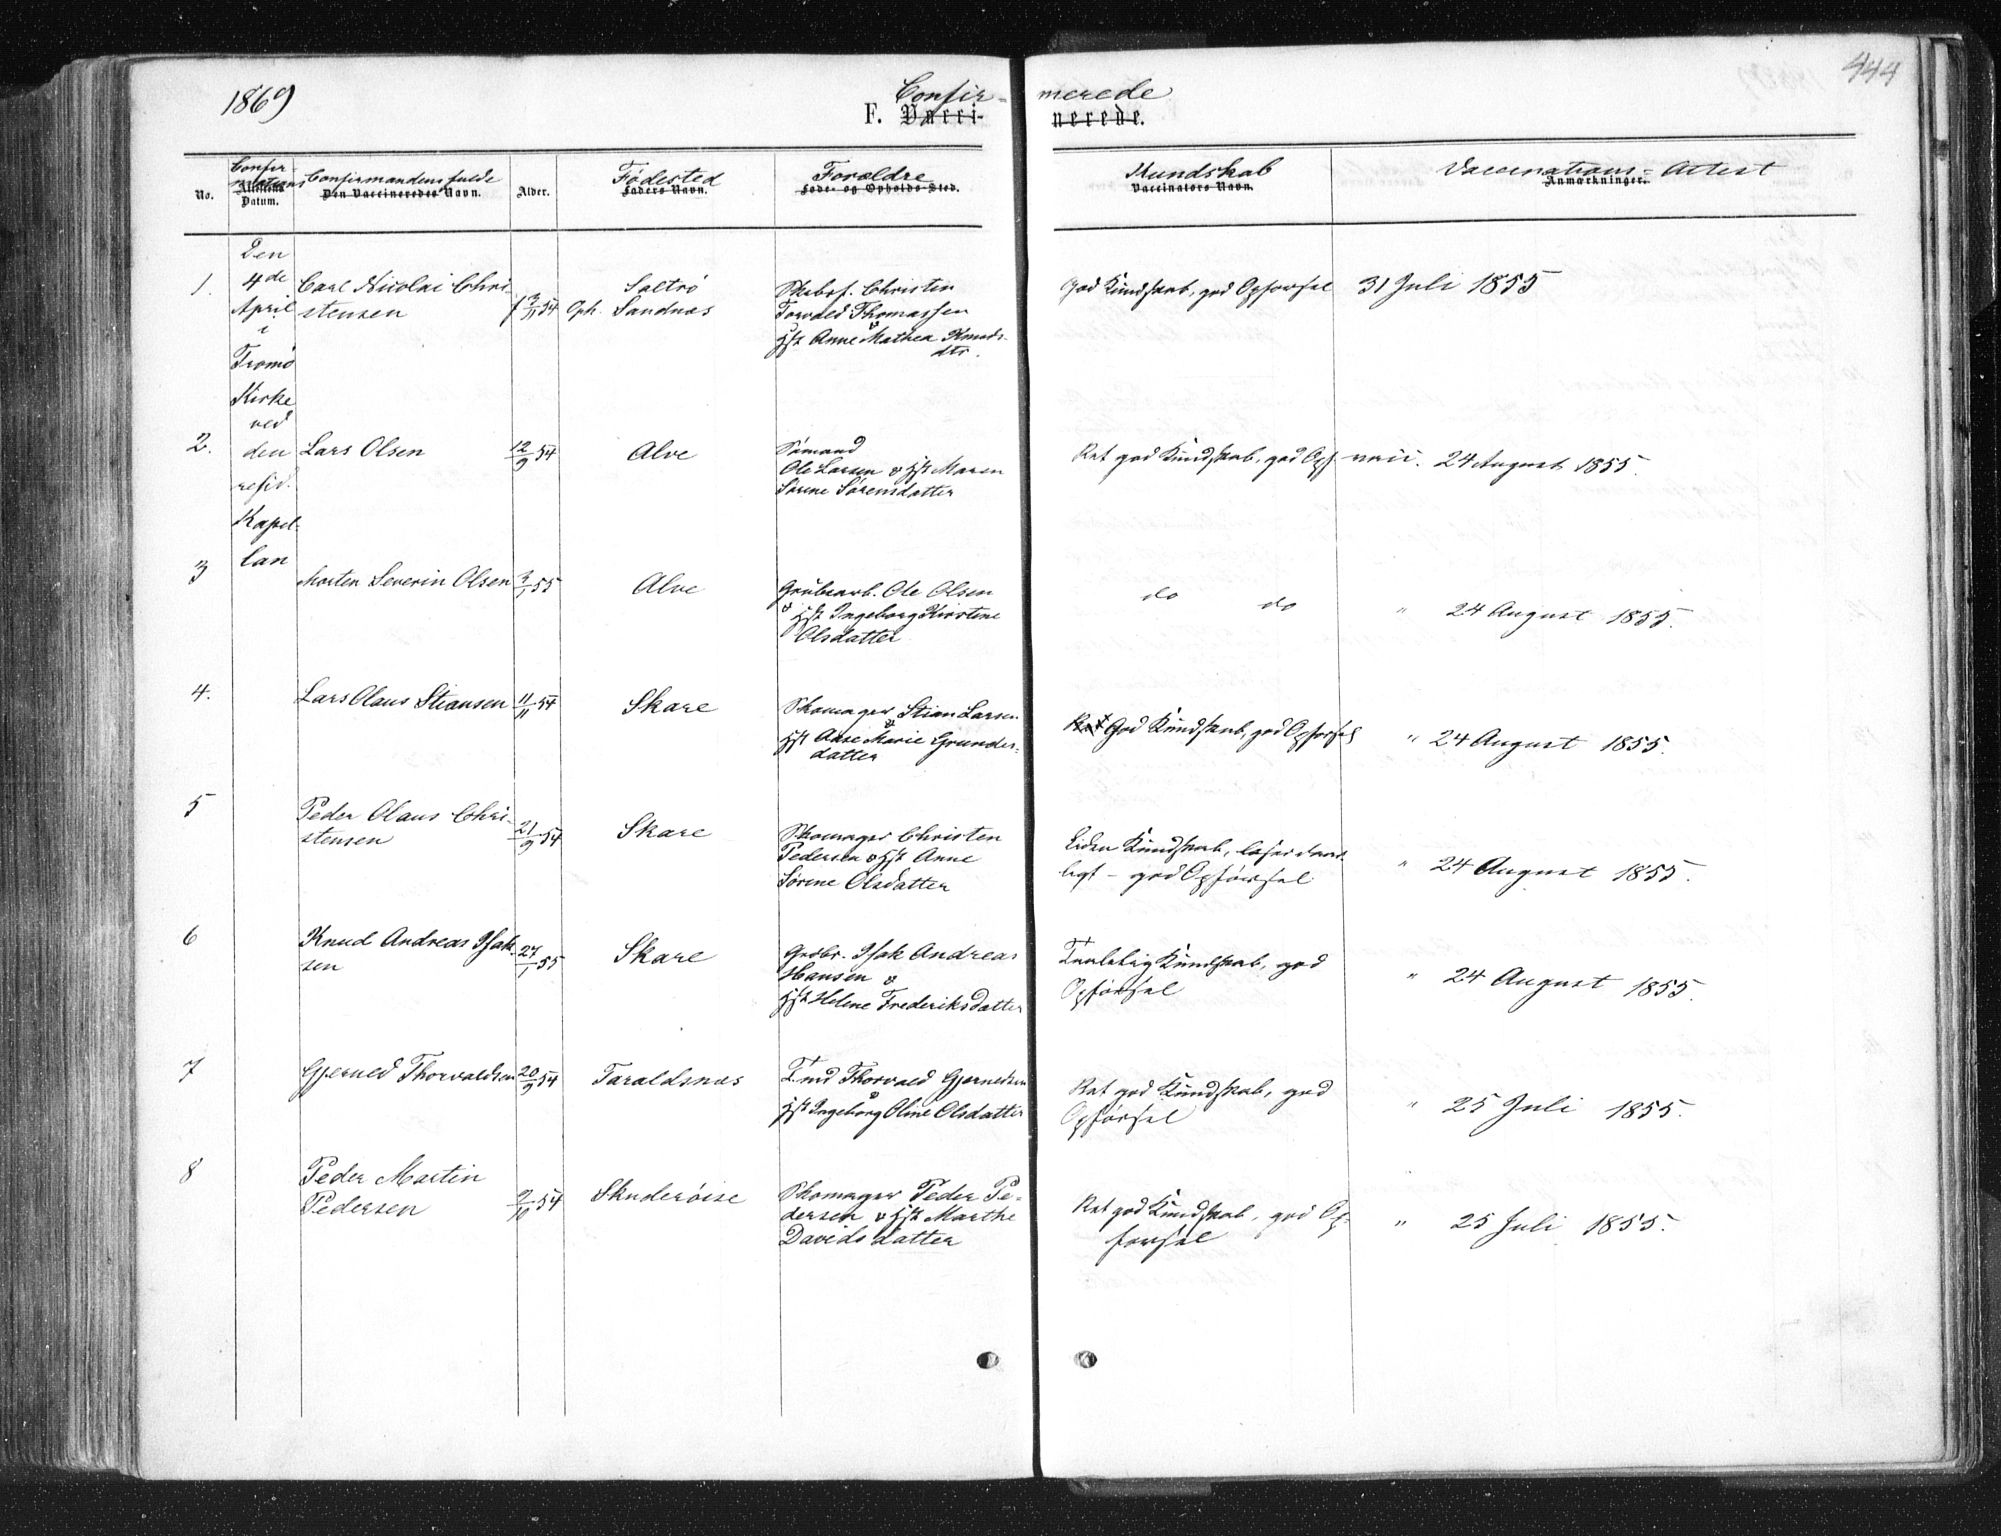 1869
444
Confir- merede
F. Vacci- nerede.
No.
Confir-
mations
Attestens
Datum.
Confirmandens fulde
Den Vaccineredes Navn.
Alder.
Fødested
Faders Navn.
Forældre
Føde- og Opholds-Sted.
Kundskab
Vaccinators Navn.
Vaccinations-Attest
Anmærkninger.
Den
4de
April
i
Tromö
Kirke
ved
den
resid.
Kapel-
lan
1. Carl Nicolai Chri-
stensen
f 3/11 54
Saltrö
Oph. Sandnæs
Christen
Torvald Thomassen
& Hst Anne Mathea Knuds-
dtr.
God Kundskab, god Opførsel
31 Juli 1855
2. Lars Olsen
12/9 54
Alve
Sömand
Ole Larsen & Hst Maren
Sörine Sörensdatter
Ret god Kundskab, god Opf.
vacc. 24 August 1855.
3 Morten Severin Olsen
3/1 55
Alve
Grubearb. Ole Olsen
& Hst Ingeborg Kirstine
Olsdatter
do do
" 24 August 1855.
4. Lars Olaus Stiansen
11/11 54
Skare
Skomager Stian Larsen
& Hst Anne Marie Gunders-
datter
Ret God Kundskab, god Opførsel
" 24 August 1855.
5 Peder Olaus Chri-
stensen
21/9 54
Skare
Skomager Christen
Pedersen & Hst Anne
Sörine Olsdatter
Liden Kundskab, læser daar-
ligt - god Opførsel
" 24 August 1855.
6 Knud Andreas Isak-
sen
27/1 55
Skare
Grdbr. Isak Andreas
Hansen &
Hst Helene Frederiksdatter
Taalelig Kundskab, god
Opførsel
" 24 August 1855.
7 Gjerued Thorvaldsen
20/9 54
Taraldsnæs
Tmd Thorvald Gjeruedsen
& Hst Ingeborg Oline Olsdatter
Ret god Kundskab, god
Opførsel
" 25 Juli 1855.
8 Peder Martin
Pedersen
9/10 54
Skuderöise
Skomager Peder Pe-
dersen & Hst Marthe
Davidsdatter
Ret god Kundskab, god Op-
førsel
" 25 Juli 1855.